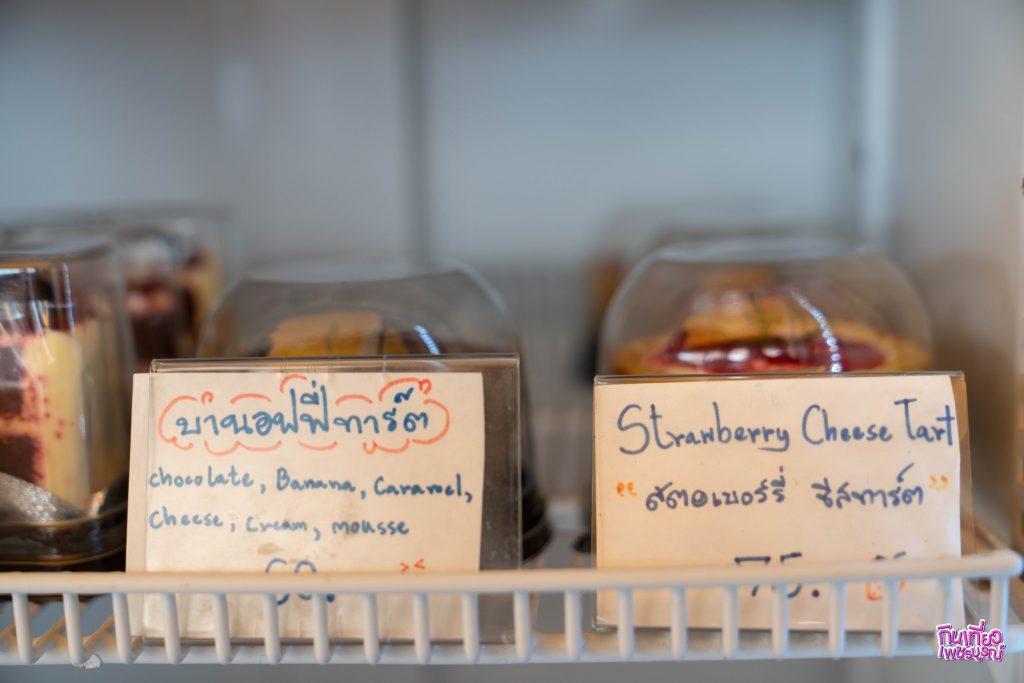 บานอฟฟี่ทาร์ต
chocolate, Banana, Caramel,
Cheese, Cream, mousse
Strawberry Cheese Tart
"สตอเบอร์รี่ ชีสทาร์ต"
75.
กินเที่ยว
เพชรบูรณ์